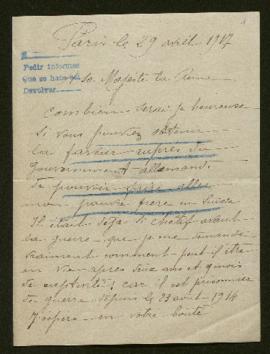 Paris le 29 avril 1917
Pedir informes
Que se haga
Devolver.
Sa Majesté la Reine
Combien serai je heureuse
Si vous pouviez obtenir
la faveur auprès du
Gouvernement allemand
de pouvoir faire aller
mon pauvre frère en Suisse
Il était déjà si chétif avant
la guerre que je me demande
vraiment comment peut il être
en vie après deux ans et
de captivité; car il est prisonnier
de guerre depuis le 23 août 1914
J'espère en votre bonté